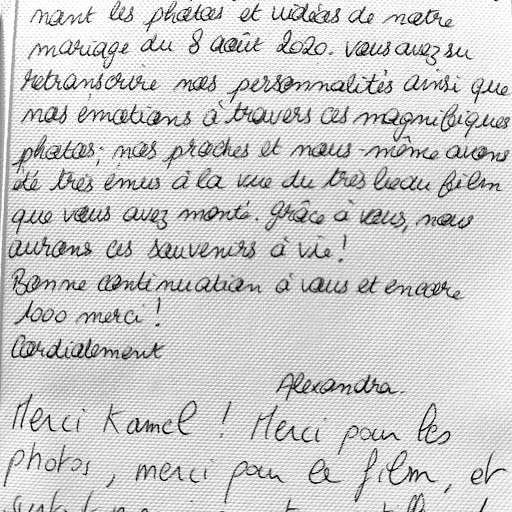 nant les photos et vidéos de notre
mariage du 8 août 2020. Vous avez su
retranscrire nos personnalités ainsi que
nos émotions à travers ces magnifiques
photos; nos proches et nous-même avons
été très émus à la vue du très beau film
que vous avez monté. Grâce à vous, nous
aurons ces souvenirs à vie!
Bonne continuation à vous et encore
1000 merci!
Cordialement
Alexandra.
Merci Kamel ! Merci pour les
photos, merci pour le film, et